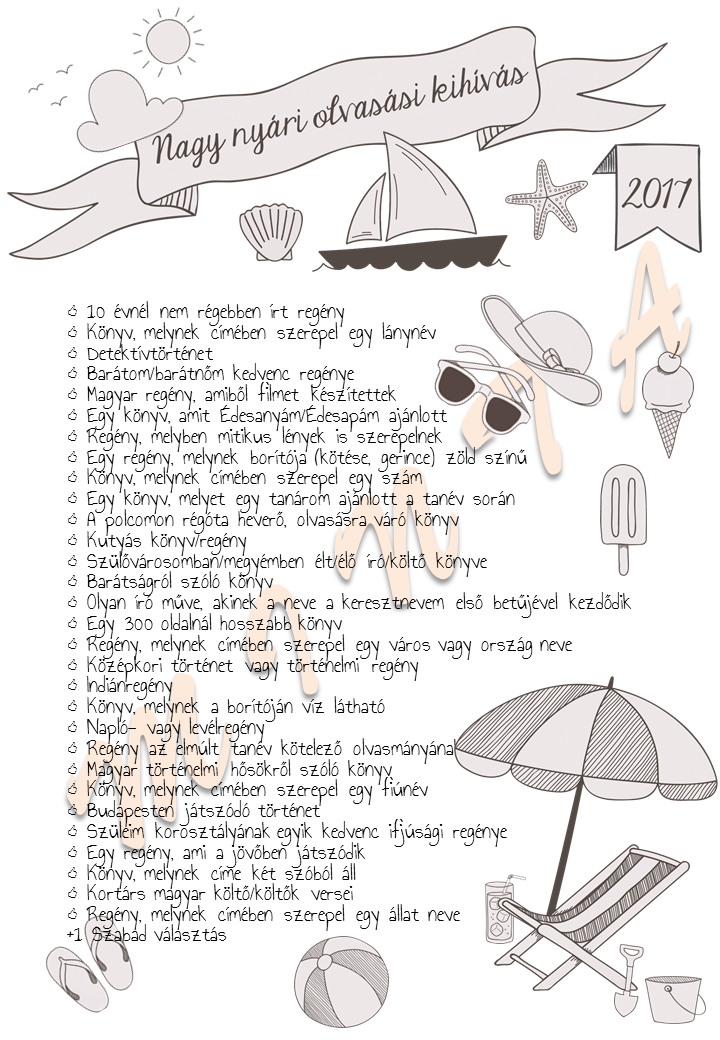 Nagy nyári olvasási kihívás
2017
10 évnél nem régebben írt regény
Könyv, melynek címében szerepel egy lánynév
Detektívtörténet
Barátom/barátnőm kedvenc regénye
Magyar regény, amiből filmet készítettek
Egy könyv, amit Édesanyám/Édesapám ajánlott
Regény, melyben mitikus lények is szerepelnek
Egy regény, melynek borítója (kötése, gerince) zöld színű
Könyv, melynek címében szerepel egy szám
Egy könyv, melyet egy tanárom ajánlott a tanév során
A polcomon régóta heverő, olvasásra váró könyv
Kutyás könyv/regény
Szülővárosomban/megyémben élt/élő író/költő könyve
Barátságról szóló könyv
Olyan író műve, akinek a neve a keresztnevem első betűjével kezdődik
Egy 300 oldalnál hosszabb könyv
Regény, melynek címében szerepel egy város vagy ország neve
Középkori történet vagy történelmi regény
Indiánregény
Könyv, melynek a borítóján víz látható
Napló- vagy levélregény
Regény az elmúlt tanév kötelező olvasmányának
Magyar történelmi hősökről szóló könyv
Könyv, melynek címében szerepel egy fiúnév
Budapesten játszódó történet
Szüleim korosztályának egyik kedvenc ifjúsági regénye
Egy regény, ami a jövőben játszódik
Könyv, melynek címe két szóból áll
Kortárs magyar költő/költők versei
Regény, melynek címében szerepel egy állat neve
+1 Szabad választás
MINTA